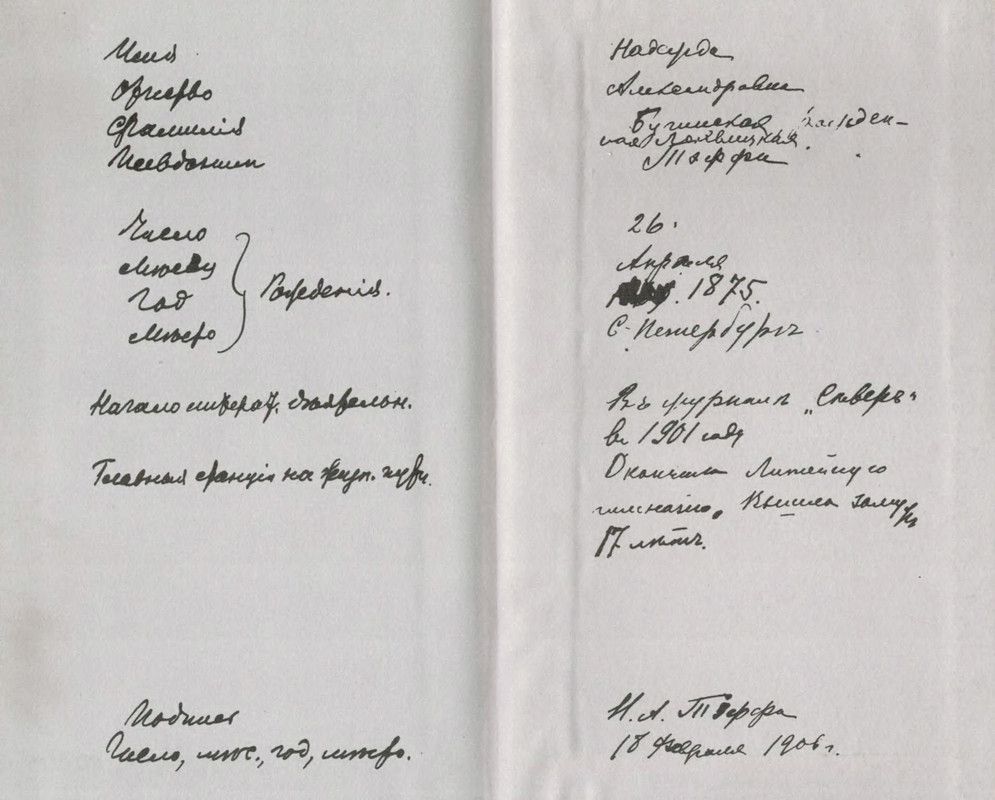 Имя
Отчество
Фамилія
Псевдоним
Число
Мѣсяц
Год
Мѣсто
Рожденія.
Начало литерат. дѣятельн.
Главныя станціи на жизн. пути.
Подпись
Число, мѣс., год, мѣсто.
Надежда
Александровна
Бучинская /рожден-
ная Лохвицкая/.
Тэффи
26.
Апрѣля
1875.
С. Петербургъ
Въ журналѣ „Сѣверъ“
въ 1901 году
Окончила Литейную
гимназію. Вышла замужъ
17 лѣтъ.
Н. А. Тэффи
18 февраля 1906 г.